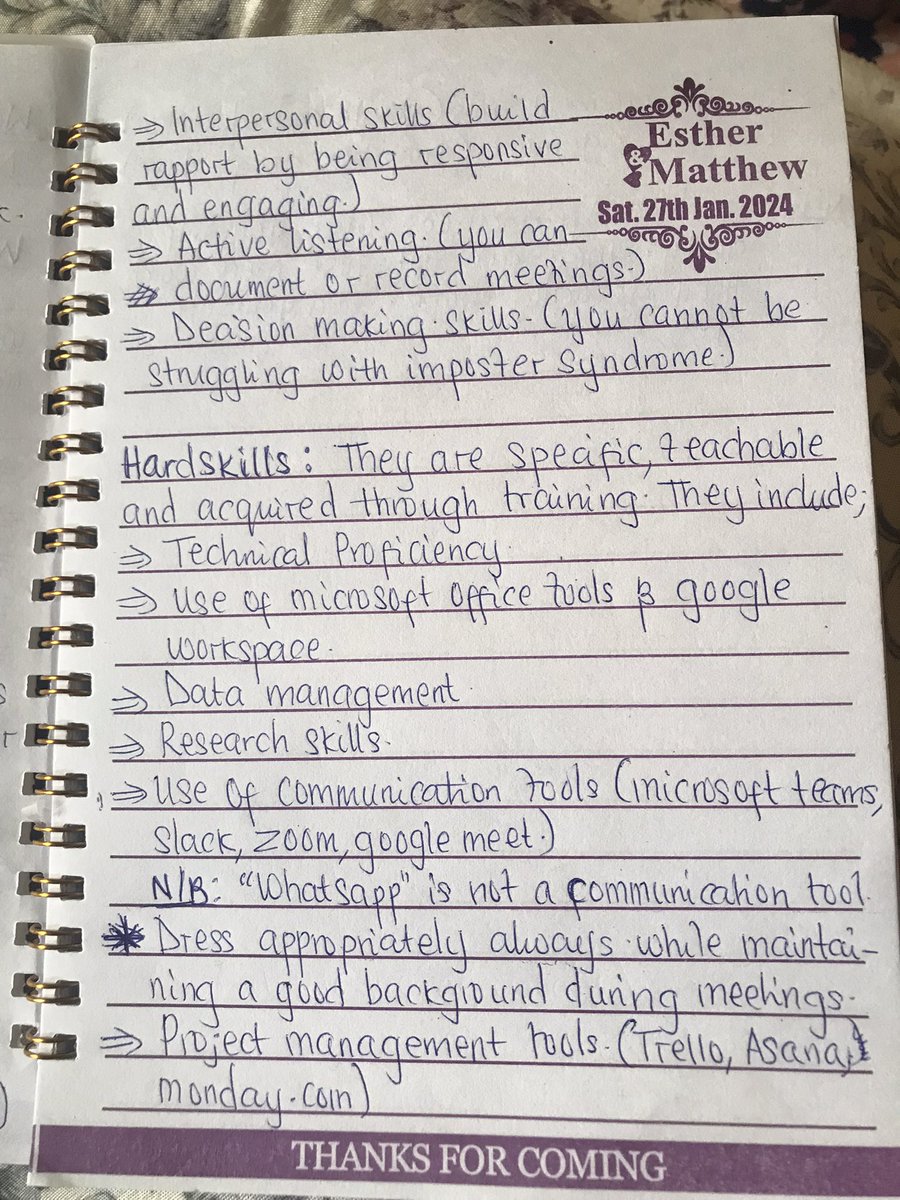 ⇒ Interpersonal skills (build
rapport by being responsive
and engaging.)
⇒ Active listening. (you can
document or record meetings.)
⇒ Decision making skills. (you cannot be
struggling with imposter syndrome.)
Esther
&
Matthew
Sat. 27th Jan. 2024
Hardskills: They are specific, teachable
and acquired through training. They include;
⇒ Technical Proficiency.
⇒ Use of microsoft office tools & google
workspace.
⇒ Data management.
⇒ Research skills.
⇒ Use of communication tools (microsoft teams,
slack, zoom, google meet.)
N/B: "Whatsapp" is not a communication tool.
* Dress appropriately always while maintai-
ning a good background during meetings.
⇒ Project management tools. (Trello, Asana,
monday.com)
THANKS FOR COMING